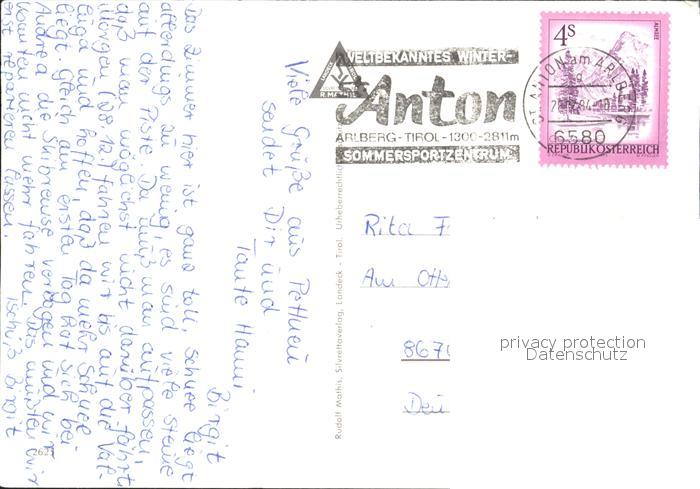 Das Zimmer hier ist ganz toll, Schnee liegt
allerdings zu wenig, es sind viele Steine
auf der Piste. Du mußt man aufpassen,
daß man möglichst nicht darüber fährt.
Morgen (28.12) fahren wir bis auf die Val-
luga und hoffen, daß da mehr Schnee
liegt. Gleich am ersten Tag hat sich bei
Andrea die Skibremse verbogen und wir
konnten nicht mehr fahren. Das mußten wir
erst reparieren lassen.
Tschüß Birgit
Viele Grüße aus Pettneu
sendet Dir und
Tante Hanni
Birgit
262
Rudolf Mathis, Silvrettaverlag, Landeck - Tirol. Urheberrechtlich
R. MATHIS
WELTBEKANNTES WINTER-
St Anton
ARLBERG - TIROL - 1300 - 2811m
SOMMERSPORTZENTRUM
ST. ANTON am ARLBERG
84-18
6580
4S
ALMSEE
REPUBLIK ÖSTERREICH
Rita F
Am Otto
8670
Deu
privacy protection
Datenschutz